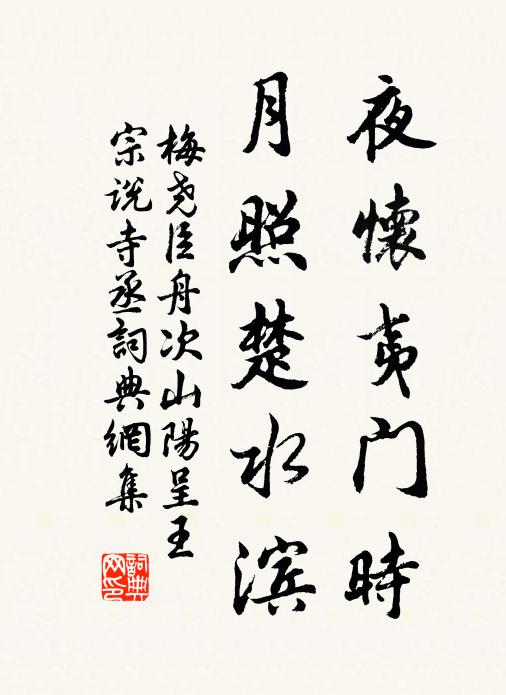 夜懷夷门時
月照楚水滨
梅尧臣舟次山陽呈王
宗说寺丞詞典網集
詞典网印